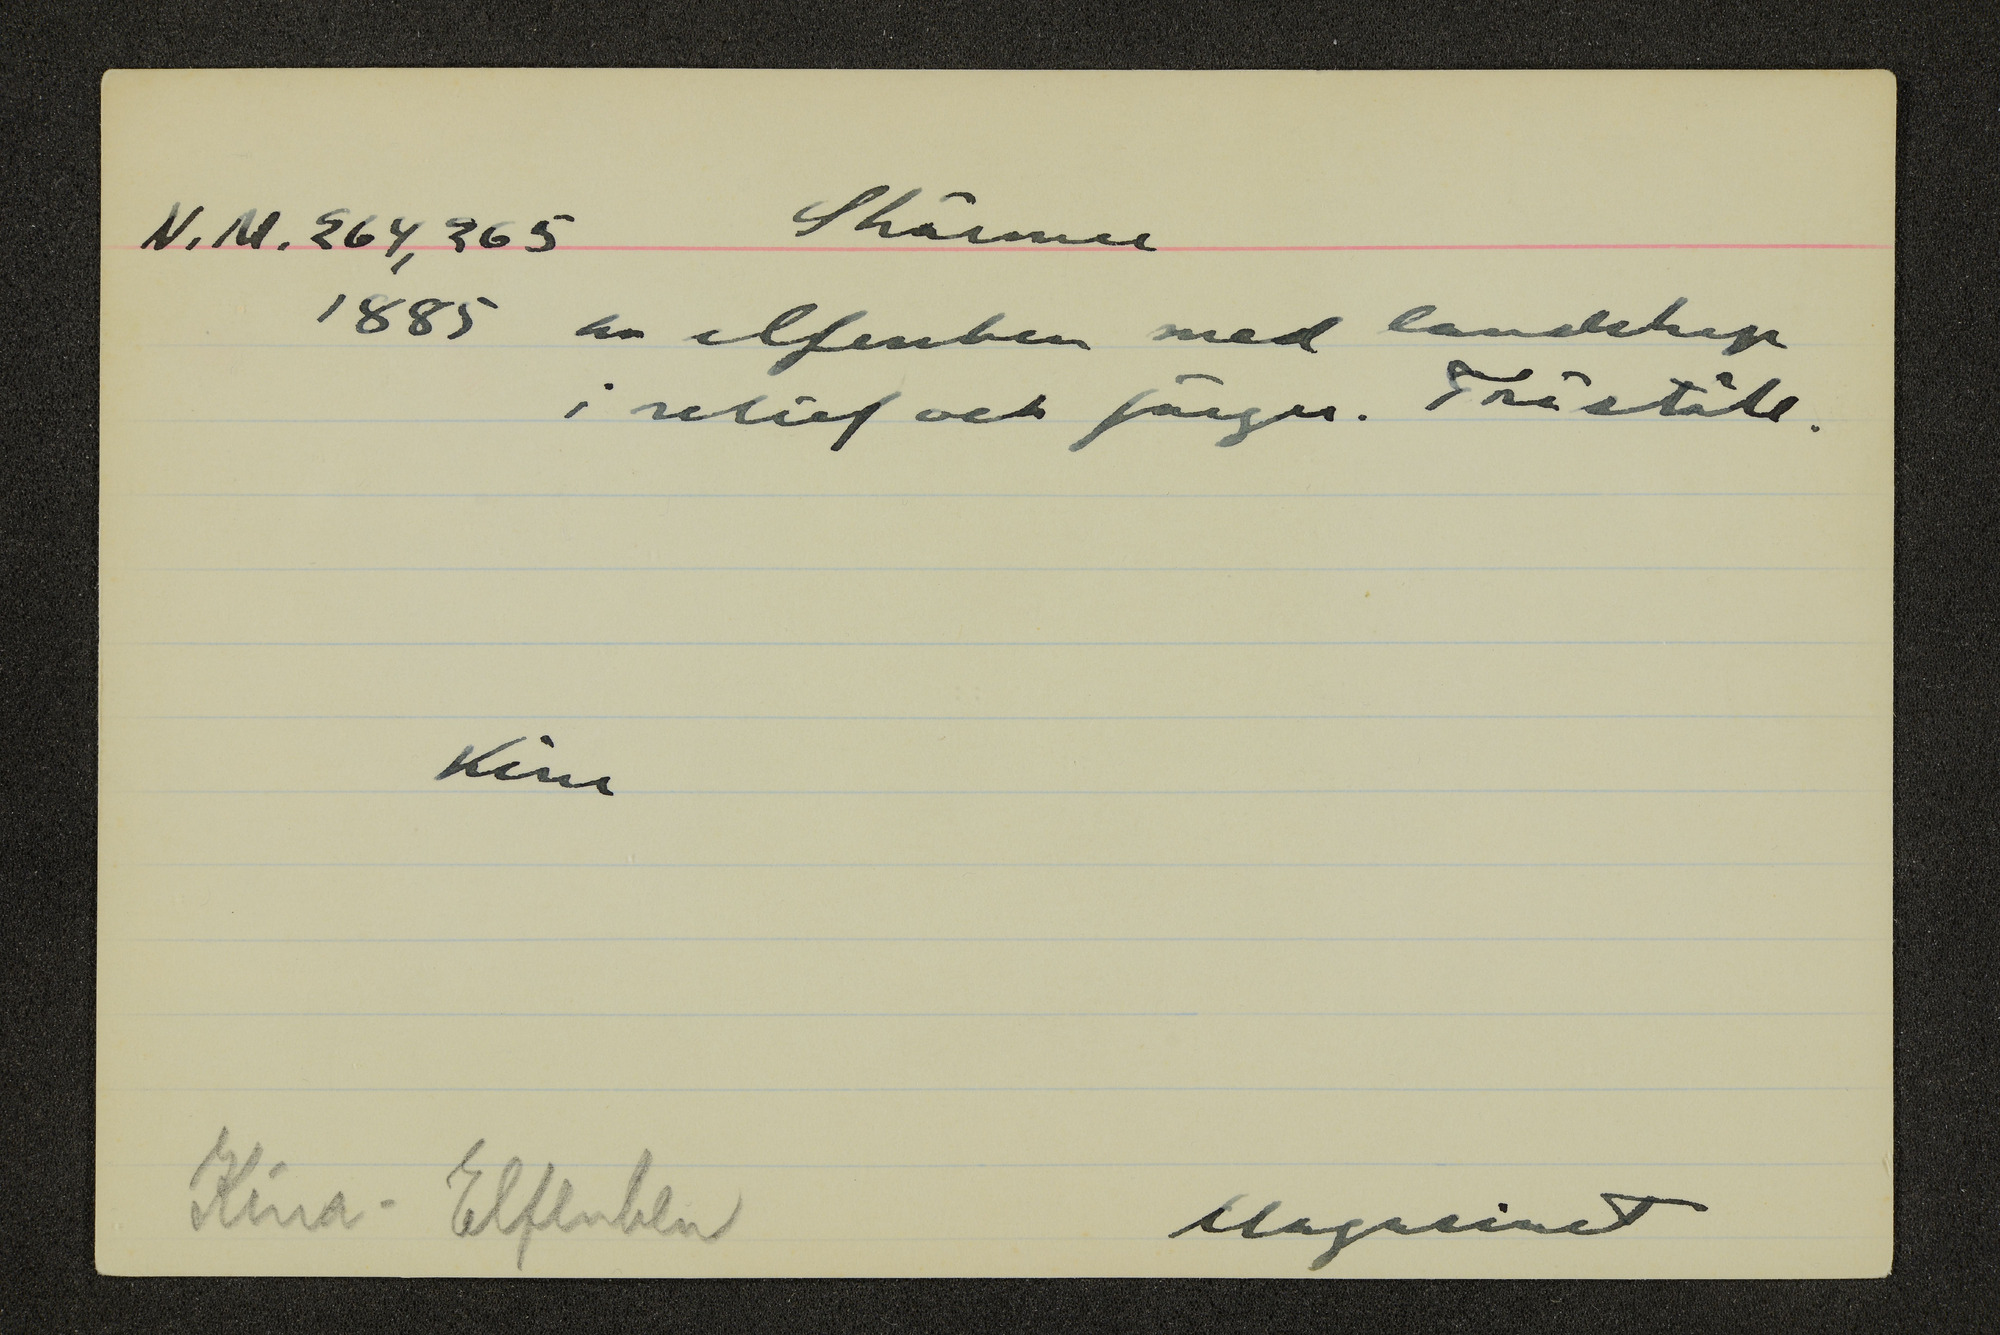 N.M. 264, 265 Skärmar
1885 av elfenben med landskap
i relief och färger. Träställ.
Kina
Kina - Elfenben
Magasinet